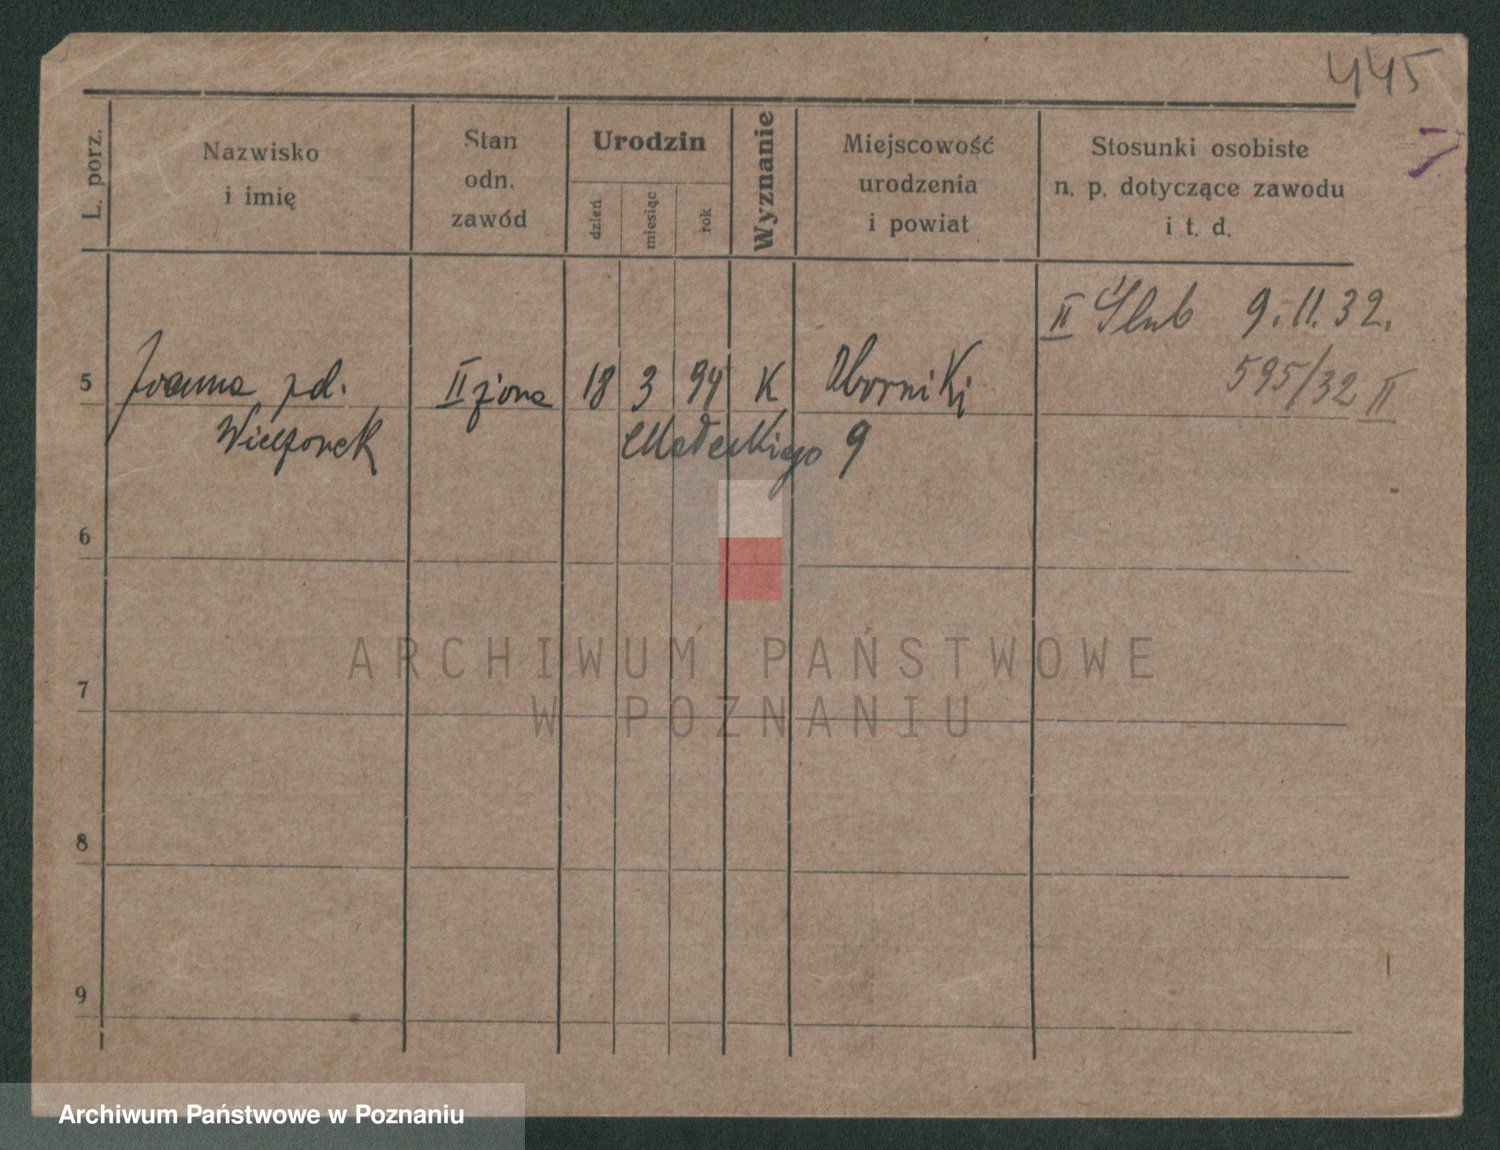 445
L. porz.
Nazwisko
i imię
Stan
odn.
zawód
Urodzin
dzień
miesiąc
rok
Wyznanie
Miejscowość
urodzenia
i powiat
Stosunki osobiste
n. p. dotyczące zawodu
i t. d.
II Ślub 9.11.32.
595/32 II
5 Joanna zd. II żona 18 3 94 K Oborniki
9
6
7
8
9
ARCHIWUM PAŃSTWOWE
W POZNANIU
Archiwum Państwowe w Poznaniu